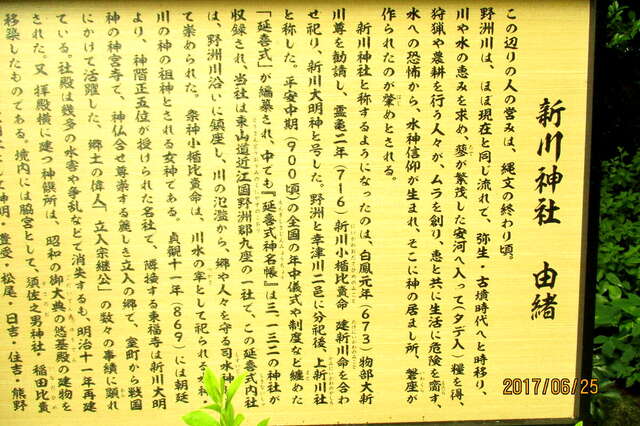 新川神社 由緒
この辺りの人の営みは、縄文の終わり頃。
野洲川は、ほぼ現在と同じ流れで、弥生・古墳時代へと時移り、
川や水の恵みを求め、葵が繁茂した安河へ入って(タデ入)糧を得、
狩猟や農耕を行う人々が、ムラを創り、恵と共に生活に危険を齎す、
水への恐怖から、水神信仰が生まれ、そこに神の居まし所、磐座が
作られたのが肇めとされる。
新川神社と称するようになったのは、白鳳元年(673)物部大新
川尊を勧請し、霊亀二年(716)新川小楯比貴命 建新川命を合わ
せ祀り、新川大明神と号した。野洲と幸津川二邑に分祀後、上新川社
と称した。平安中期(900頃)の全国の年中儀式や制度など纏めた
「延喜式」が編纂され、中でも『延喜式神名帳』は三、一三二の神社が
収録され、当社は東山道近江国野洲郡九座の一社で、この延喜式内社
は、野洲川沿いに鎮座し、川の氾濫から、郷や人々を守る司水神
て崇められた。祭神小楯比貴命は、川水の幸として祀られる水神・
川の神の祖神とされる女神である。貞観十一年(869)には朝廷
より、神階正五位が授けられた名社で、隣接する東福寺は新川大明
神の神宮寺で、神仏合せ尊崇する麗しき立入の郷で、室町から戦国
にかけて活躍した、郷土の偉人「立入宗継公」の数々の事績に顕れ
ている。社殿は幾多の水害や争乱などで消失するも、明治十一年再建
された。又 拝殿横に建つ神饌所は、昭和の御大典の悠基殿の建物を
移築したものである。境内には脇宮として、須佐之男神社・稲田比貴
神明・豊受・松尾・日吉・住吉・熊野
2017/06/25